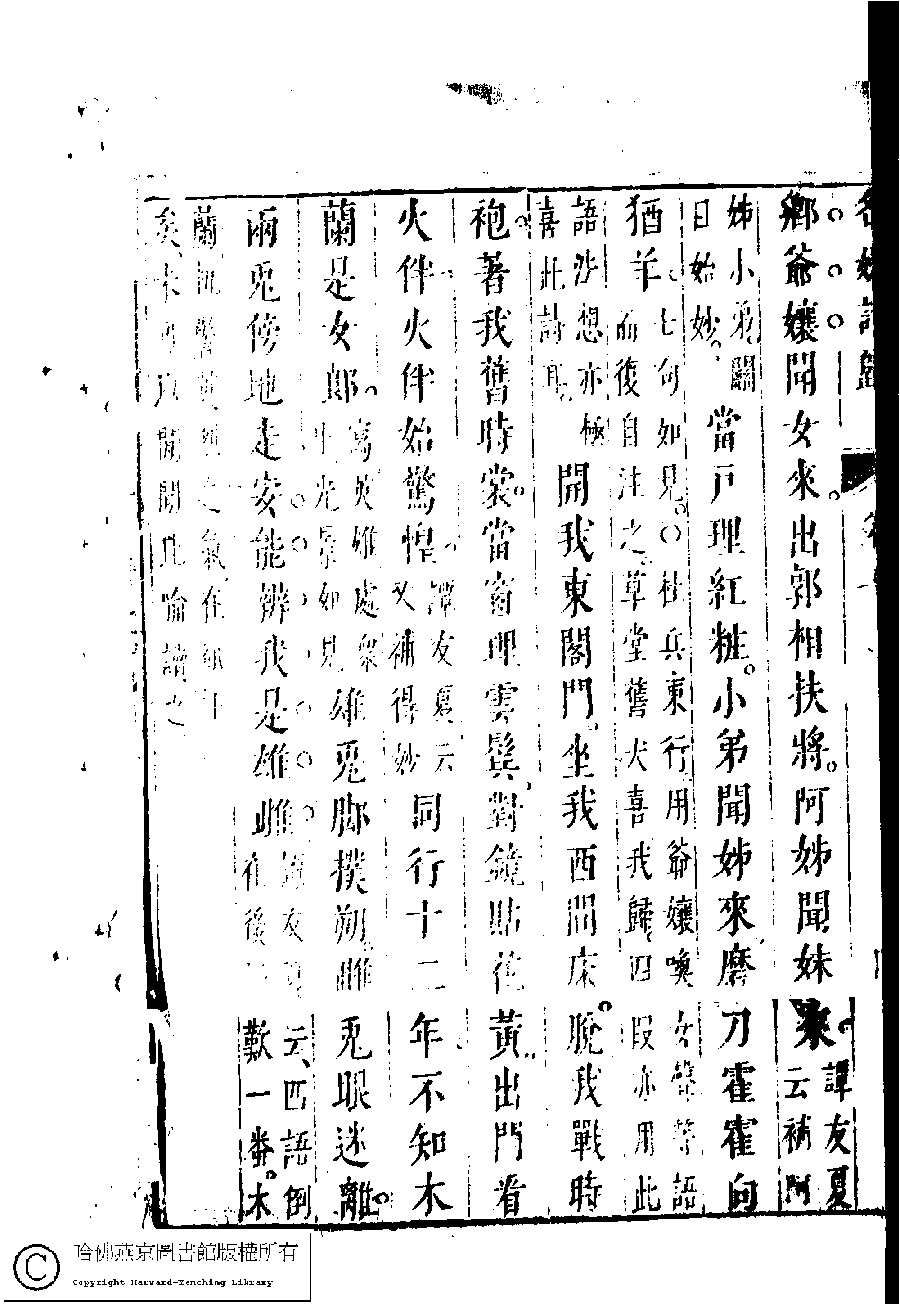 名媛詩歸
鄉爺孃聞女來出郭相扶將阿姊聞妹來譚友夏
云補阿
姊小弟關
目始妙當戶理紅粧小弟聞姊來磨刀霍霍向
猪羊七句如見○杜兵東行用爺孃喚女聲等語
而後自注之草堂舊犬喜我歸四段亦用此
語沙想亦極
喜此詩耳開我東閣門坐我西間床脫我戰時
袍著我舊時裳當窗理雲鬢對鏡貼花黃出門看
火伴火伴始驚惶譚友夏云
又補得妙同行十二年不知木
蘭是女郎寫英雄處眾
中光景如見雄兎脚撲朔雌兎眼迷離
兩兎傍地走安能辨我是雄雌譚友夏云四語倒
在後歎一番木
蘭機警英烈之氣在
矣未可只閒閒此喻讀之
哈佛燕京圖書館版權所有
Copyright Harvard-Yenching Library